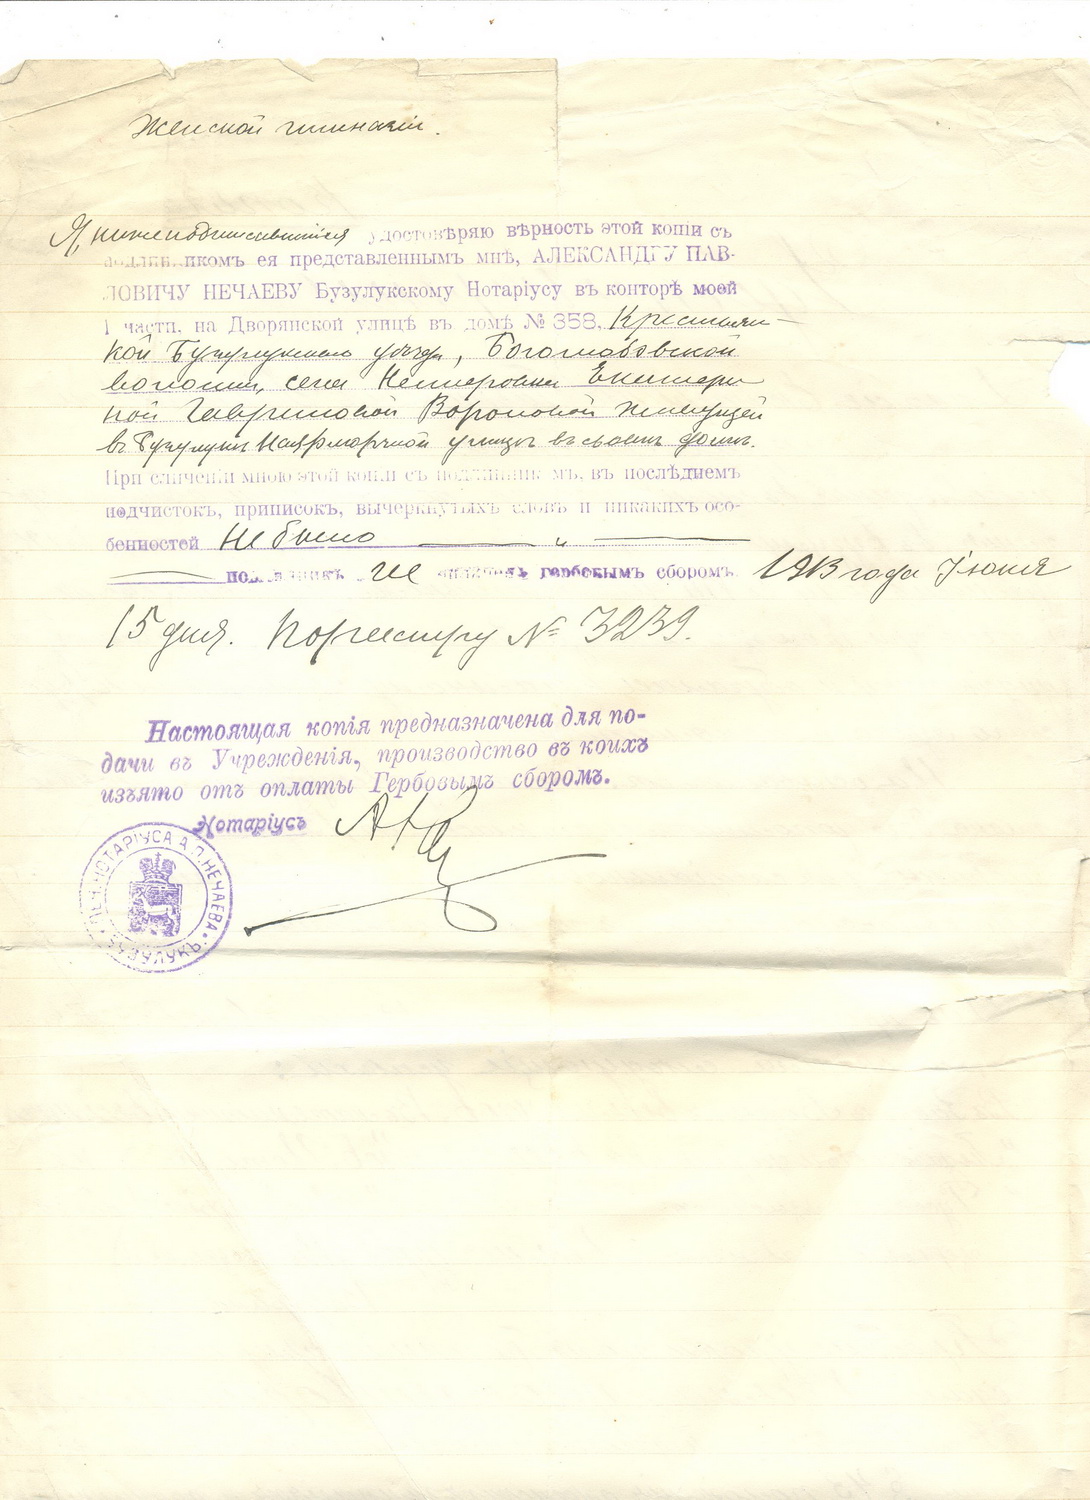 Женской гимназіи.
Я, нижеподписавшійся удостовѣряю вѣрность этой копіи съ
подлинникомъ ея представленнымъ мнѣ, АЛЕКСАНДРУ ПАВ-
ЛОВИЧУ НЕЧАЕВУ Бузулукскому Нотаріусу въ конторѣ моей
1 части, на Дворянской улицѣ въ домѣ № 358, Крестьян-
кой Бузулукскаго уѣзда, Богомобовской
волости, села Екатери
ной Гавриловой Вороновой живущей
въ Бузулукѣ улицѣ въ своемъ домѣ.
При сличеніи мною этой копіи съ подлинникомъ, въ послѣднемъ
подчистокъ, приписокъ, вычеркнутыхъ словъ и никакихъ осо-
бенностей не было — " —
— подлинникъ не оплаченъ гербовымъ сборомъ. 1913 года Іюня
15 дня. По реестру № 3239.
Настоящая копія предназначена для по-
дачи въ Учрежденія, производство въ коихъ
изъято отъ оплаты Гербовымъ сборомъ.
Нотаріусъ
ПЕЧ. НОТАРІУСА А. П. НЕЧАЕВА • БУЗУЛУКЪ •